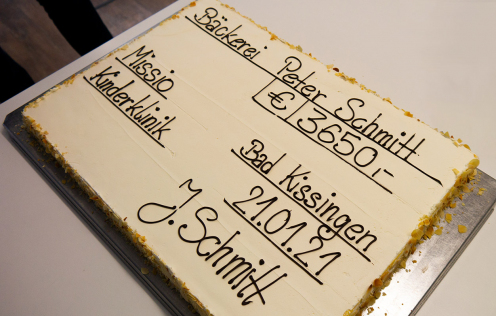 Bäckerei Peter Schmitt
€ 3650,-
Missio
Kinderklinik
Bad Kissingen
21.01.21
J. Schmitt